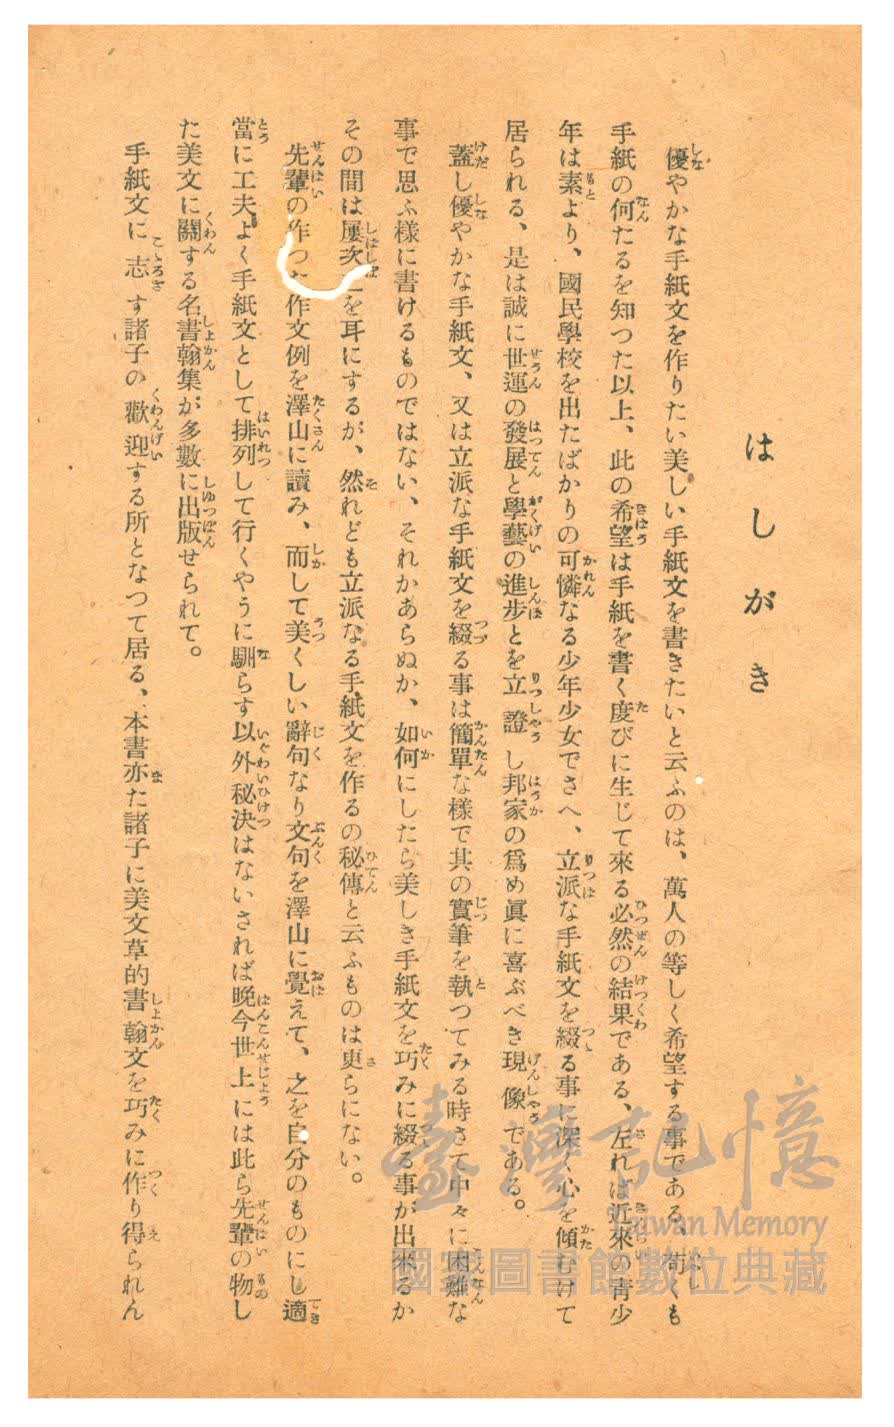 はしがき
優やかな手紙文を作りたい美しい手紙文を書きたいと云ふのは、萬人の等しく希望する事である、苟くも
手紙の何たるを知つた以上、此の希望は手紙を書く度びに生じて來る必然の結果である、左れば近來の靑少
年は素より、國民學校を出たばかりの可憐なる少年少女でさへ、立派な手紙文を綴る事に深く心を傾むけて
居られる、是は誠に世運の發展と學藝の進步とを立證し邦家の爲め眞に喜ぶべき現像である。
蓋し優やかな手紙文、又は立派な手紙文を綴る事は簡單な樣で其の實筆を執つてみる時さて中々に困難な
事で思ふ樣に書けるものではない、それかあらぬか、如何にしたら美しき手紙文を巧みに綴る事が出來るか
その間は屢次を耳にするが、然れども立派なる手紙文を作るの秘傳と云ふものは更らにない。
先輩の作つた作文例を澤山に讀み、而して美くしい辭句なり文句を澤山に覺えて、之を自分のものにし適
當に工夫よく手紙文として排列して行くやうに馴らす以外秘決はないされば晩今世上には此ら先輩の物し
た美文に關する名書翰集が多數に出版せられて。
手紙文に志す諸子の歡迎する所となつて居る、本書亦た諸子に美文草的書翰文を巧みに作り得られん
臺灣記憶
Taiwan Memory
國家圖書館數位典藏